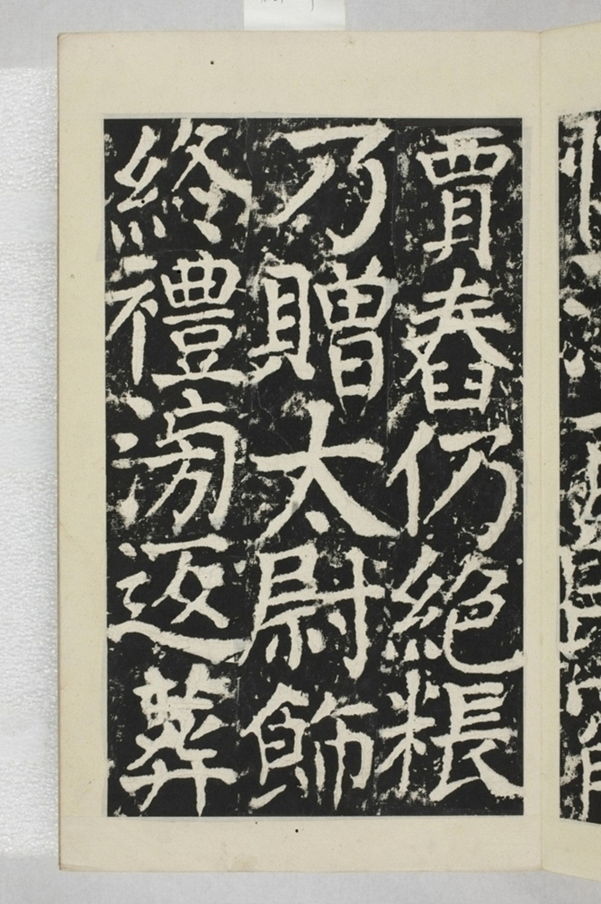 賈舂仍絕粻
乃贈太尉飾
終禮返葬